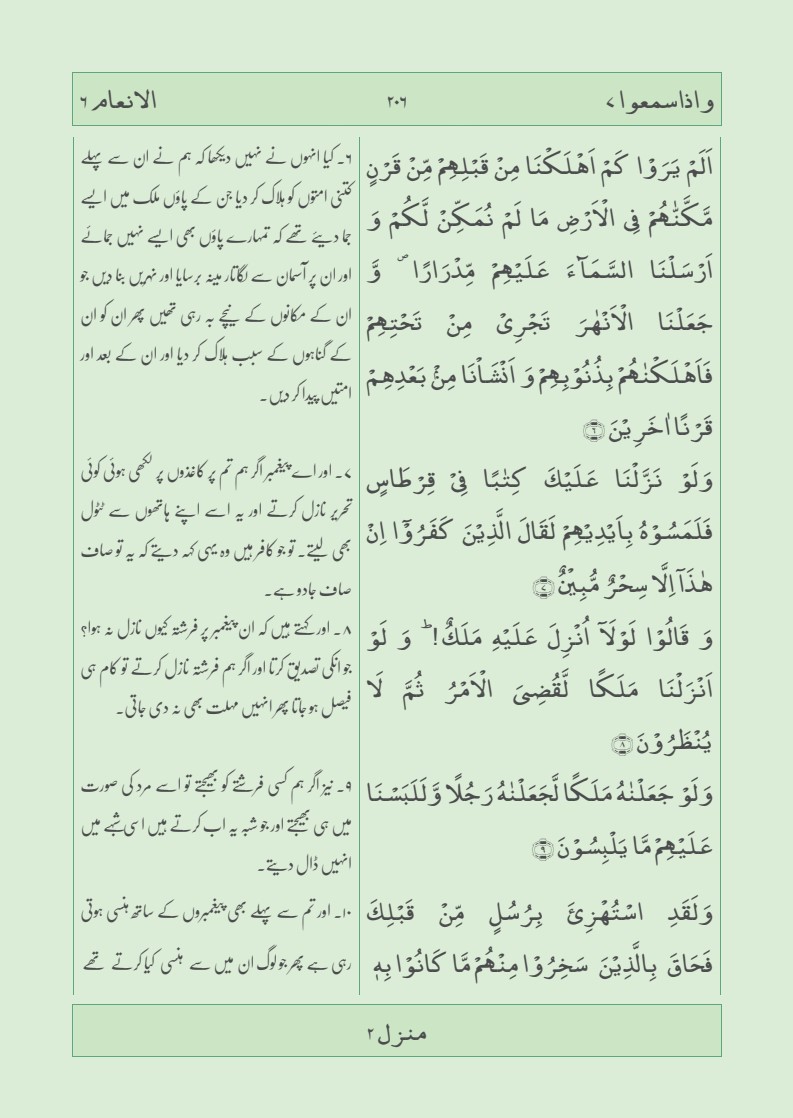 واذاسمعوا ۷
۲۰۶
الانعام ۶
اَلَمْ يَرَوْا كَمْ اَهْلَكْنَا مِنْ قَبْلِهِمْ مِّنْ قَرْنٍ
مَّكَّنّٰهُمْ فِى الْاَرْضِ مَا لَمْ نُمَكِّنْ لَّكُمْ وَ
اَرْسَلْنَا السَّمَآءَ عَلَيْهِمْ مِّدْرَارًا ۪ وَّ
جَعَلْنَا الْاَنْهٰرَ تَجْرِىْ مِنْ تَحْتِهِمْ
فَاَهْلَكْنٰهُمْ بِذُنُوْبِهِمْ وَ اَنْشَاْنَا مِنْۢ بَعْدِهِمْ
قَرْنًا اٰخَرِيْنَ ﴿۶﴾
وَلَوْ نَزَّلْنَا عَلَيْكَ كِتٰبًا فِىْ قِرْطَاسٍ
فَلَمَسُوْهُ بِاَيْدِيْهِمْ لَقَالَ الَّذِيْنَ كَفَرُوْٓا اِنْ
هٰذَآ اِلَّا سِحْرٌ مُّبِيْنٌ ﴿۷﴾
وَ قَالُوْا لَوْلَآ اُنْزِلَ عَلَيْهِ مَلَكٌ! ؕ وَ لَوْ
اَنْزَلْنَا مَلَكًا لَّقُضِىَ الْاَمْرُ ثُمَّ لَا
يُنْظَرُوْنَ ﴿۸﴾
وَلَوْ جَعَلْنٰهُ مَلَكًا لَّجَعَلْنٰهُ رَجُلًا وَّ لَلَبَسْنَا
عَلَيْهِمْ مَّا يَلْبِسُوْنَ ﴿۹﴾
وَلَقَدِ اسْتُهْزِئَ بِرُسُلٍ مِّنْ قَبْلِكَ
فَحَاقَ بِالَّذِيْنَ سَخِرُوْا مِنْهُمْ مَّا كَانُوْا بِهٖ
۶۔ کیا انہوں نے نہیں دیکھا کہ ہم نے ان سے پہلے
کتنی امتوں کو ہلاک کر دیا جن کے پاؤں ملک میں ایسے
جما دیئے تھے کہ تمہارے پاؤں بھی ایسے نہیں جمائے
اور ان پر آسمان سے لگاتار مینہ برسایا اور نہریں بنا دیں جو
ان کے مکانوں کے نیچے بہ رہی تھیں پھر ان کو ان
کے گناہوں کے سبب ہلاک کر دیا اور ان کے بعد اور
امتیں پیدا کر دیں۔
۷۔ اور اے پیغمبر اگر ہم تم پر کاغذوں پر لکھی ہوئی کوئی
تحریر نازل کرتے اور یہ اسے اپنے ہاتھوں سے ٹٹول
بھی لیتے۔ تو جو کافر ہیں وہ یہی کہہ دیتے کہ یہ تو صاف
صاف جادو ہے۔
۸۔ اور کہتے ہیں کہ ان پیغمبر پر فرشتہ کیوں نازل نہ ہوا؟
جو انکی تصدیق کرتا اور اگر ہم فرشتہ نازل کرتے تو کام ہی
فیصل ہو جاتا پھر انہیں مہلت بھی نہ دی جاتی۔
۹۔ نیز اگر ہم کسی فرشتے کو بھیجتے تو اسے مرد کی صورت
میں ہی بھیجتے اور جو شبہ یہ اب کرتے ہیں اسی شبے میں
انہیں ڈال دیتے۔
۱۰۔ اور تم سے پہلے بھی پیغمبروں کے ساتھ ہنسی ہوتی
رہی ہے پھر جو لوگ ان میں سے ہنسی کیا کرتے تھے
منزل ۲